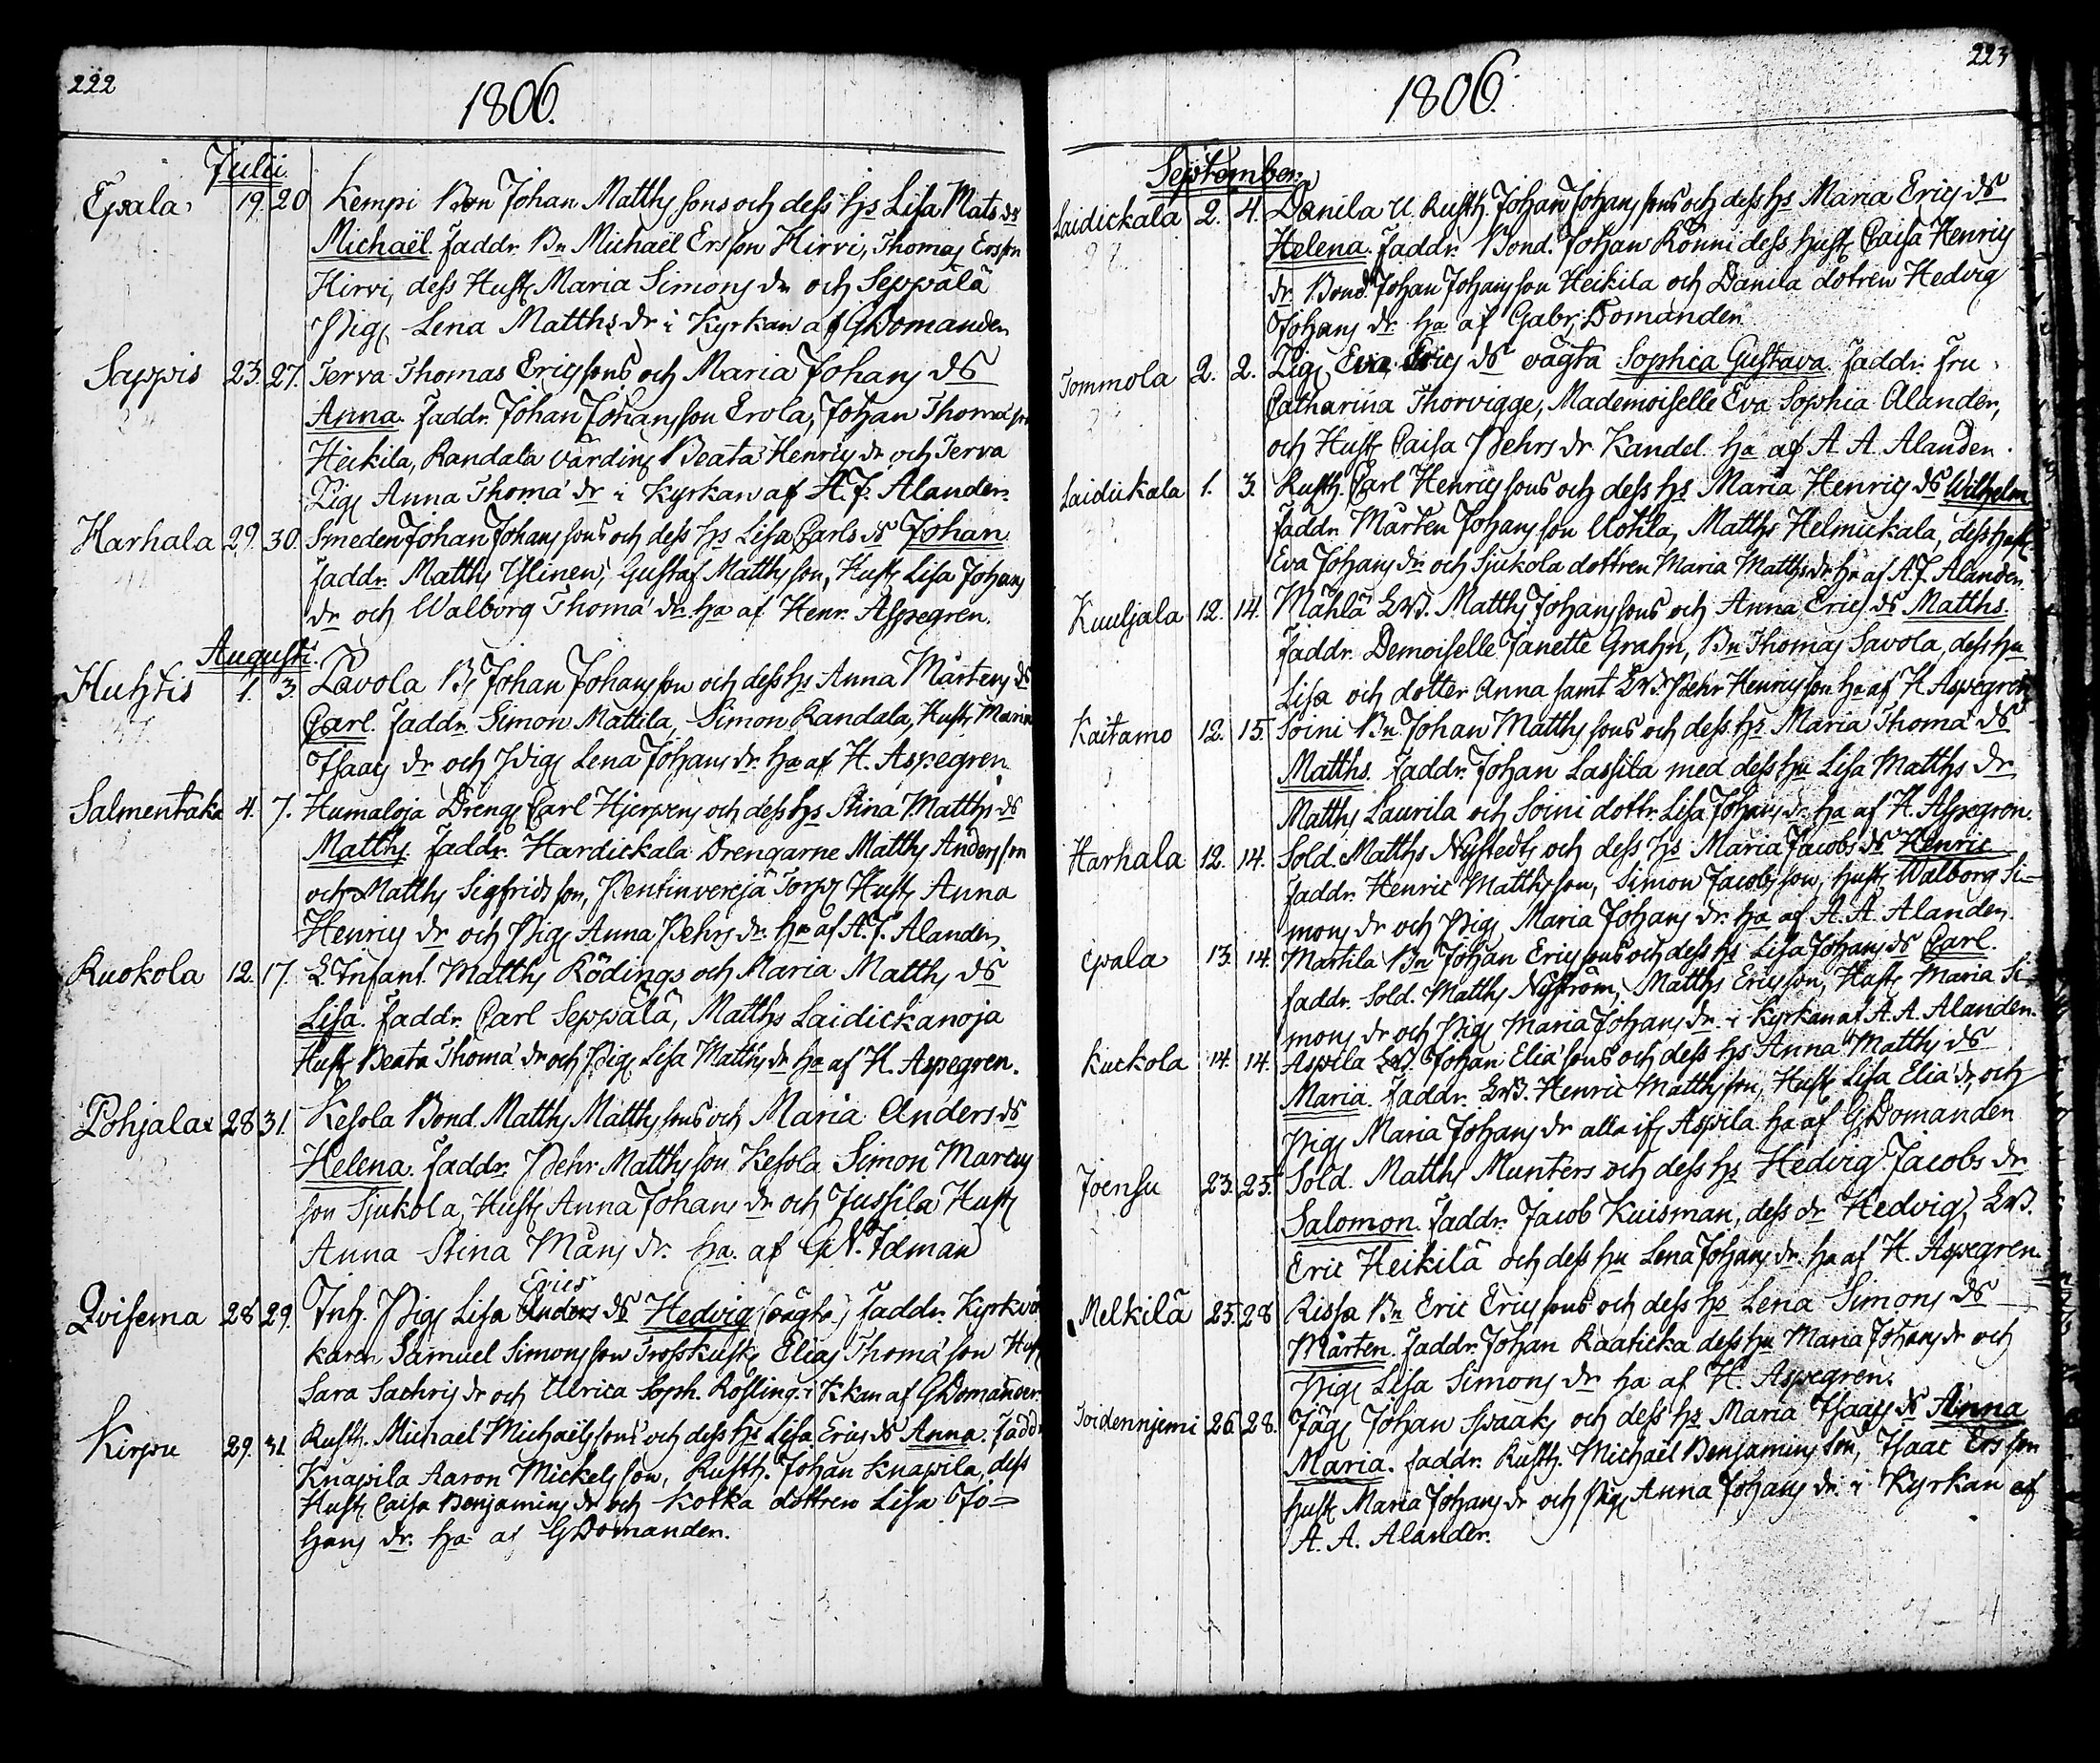 222
1806.
Julii.
Epala 19. 20 Kempi Bon Johan Matths sons och dess hs Lisa Mats ds
Michaël. Faddr. Bn Michaël Ersson Hirvi, Thomas Ersson
Hirvi, dess Hust. Maria Simons dr och Seppälä
Pig. Lena Matths dr i Kyrkan af G Domander.
Sappis 23. 27. Terva Thomas Erics sons och Maria Johans ds
Anna. Faddr. Johan Johansson Erola, Johan Thomason
Heikila, Randala värdin Beata Henrics dr och Terva
Pig. Anna Thoma dr i Kyrkan af A. J. Alander.
Harhala 29. 30. Smeden Johan Johans sons och dess hs Lisa Carls ds Johan
Faddr. Matths Ylinen, Gustaf Matthsson, Hust. Lisa Johans
dr och Walborg Thoma dr. ha af Henr. Aspegren.
Augusti.
Huhtis 1. 3. Lavola B. Johan Johansson och dess hs Anna Mårtens ds
Carl. Faddr. Simon Mattila, Simon Randala, Hust. Maria
Isaacs dr och Pig. Lena Johans dr. ha af H. Aspegren.
Salmentaka 4. 7. Humaloja Dreng Carl Hjerpens och dess hs Stina Matths ds
Matths. Faddr. Hardickala Drengarne Matths Andersson
och Matths Sigfridsson, Pentinvereja Torp. Hust. Anna
Henrics dr och Pig. Anna Pehrs dr. ha af A. J. Alander.
Ruokola 12. 17. L. Infant. Matths Rödings och Maria Matths ds
Lisa. Faddr. Carl Seppälä, Matths Laidickanoja
Hust. Beata Thoma dr och Pig. Lisa Matths dr ha af H. Aspegren.
Pohjala 28 31. Kesola Bond. Matths Matths sons och Maria Anders ds
Helena. Faddr. Pehr Matthsson Kesola Simon Marcus
son Sjukola, Hust. Anna Johans dr och Jussila Hust.
Anna Stina Måns dr. ha. af G. N. Idman
Qvisema 28 29. Inh. Pig. Lisa Anders Erics ds Hedvig (oägta) Faddr. Kyrkvä
karen Samuel Simonsson Trosskusk Elias Thoma son Hust
Sara Sachris dr och Ulrica Soph. Rosling. i Kkan af G Domander.
Kirpu 29. 31. Rusth. Michael Michaëls sons och dess hs Lisa Erics ds Anna. Faddr
Knapila Aaron Mickelsson, Rusth. Johan Knapila, dess
Hust. Caisa Benjamins dr och Kotka dottren Lisa Jo=
hans dr. ha af G Domander.
223
1806.
September.
Laidickala 2. 4. Danila U. Rusth. Johan Johans sons och dess hs Maria Erics ds
Helena. Faddr. Bond. Johan Rönni dess hust. Caisa Henrics
dr Bond. Johan Johansson Heikila och Danila dotren Hedvig
Johans dr. ha af Gabr. Domander.
Tommola 2. 2. Pig. Eva Erics ds oägta Sophia Gustava. Faddr. Fru
Catharina Thorvigge, Mademoiselle Eva Sophia Alander,
och Hust. Caisa Pehrs dr Kandel. ha af A A. Alander.
Laidickala 1. 3. Rusth. Carl Henrics sons och dess hs Maria Henrics ds Wilhelm
Faddr. Mårten Johansson Uotila, Matths Helmickala, dess hust.
Eva Johans dr och Sjukola dottren Maria Matths dr. ha af A. J. Alander.
Kuuljala 12. 14. Mähla Matths Johans sons och Anna Erics ds Matths.
Faddr. Demoiselle Janette Grahn, Bn Thomas Savola, dess hu
Lisa och dotter Anna samt Pehr Henricsson ha af H Aspegren
Kaitamo 12. 15. Soini Bn Johan Matths sons och dess hs Maria Thoma ds
Matths. Faddr. Johan Lassila med dess hu Lisa Matths dr
Matths Laurila och Soini dottr. Lisa Johans dr ha af H. Aspegren.
Harhala 12. 14. Sold. Matths Nystedts och dess hs Maria Jacobs ds Henric
Faddr. Henric Matthsson, Simon Jacobsson, hust. Walborg Si=
mons dr och Pig. Maria Johans dr. ha af A. A. Alander.
Epala 13. 14. Martila Bn Johan Erics sons och dess hs Lisa Johans ds Carl.
Faddr. Sold. Matths Nyström, Matths Ericsson, Hust. Maria Si=
mons dr och Pig. Maria Johans dr. i Kyrkan af A. A. Alander.
Kuckola 14. 14. Aspila Johan Elia sons och dess hs Anna Matths ds
Maria. Faddr. Henric Matthsson, Hust. Lisa Elia dr, och
Pig. Maria Johans dr alla ifr. Aspila ha af G Domander
Joensu 23. 25. Sold. Matths Munters och dess hs Hedvig Jacobs dr
Salomon. Faddr. Jacob Kuisman, dess dr Hedvig,
Eric Heikilä och dess hu Lena Johans dr. ha af H. Aspegren.
Melkilä 25. 28 Rissa Bn Eric Erics sons och dess hs Lena Simons ds
Mårten. Faddr. Johan Raaticka dess hu Maria Johans dr och
Pig. Lisa Simons dr ha af H. Aspegren.
Toidennjemi 26. 28. Jäg. Johan Spaaks och dess hs Maria Isaacs ds Anna
Maria. Faddr. Rusth. Michaël Benjaminsson, Isaac Ersson
hust. Maria Johans dr och Pig. Anna Johans dr. i Kyrkan af
A. A. Alander.